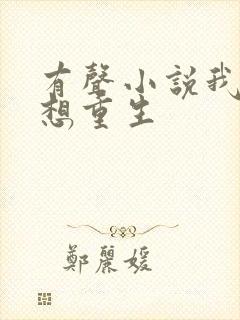 有聲小説我
想重生
鄭麗媛